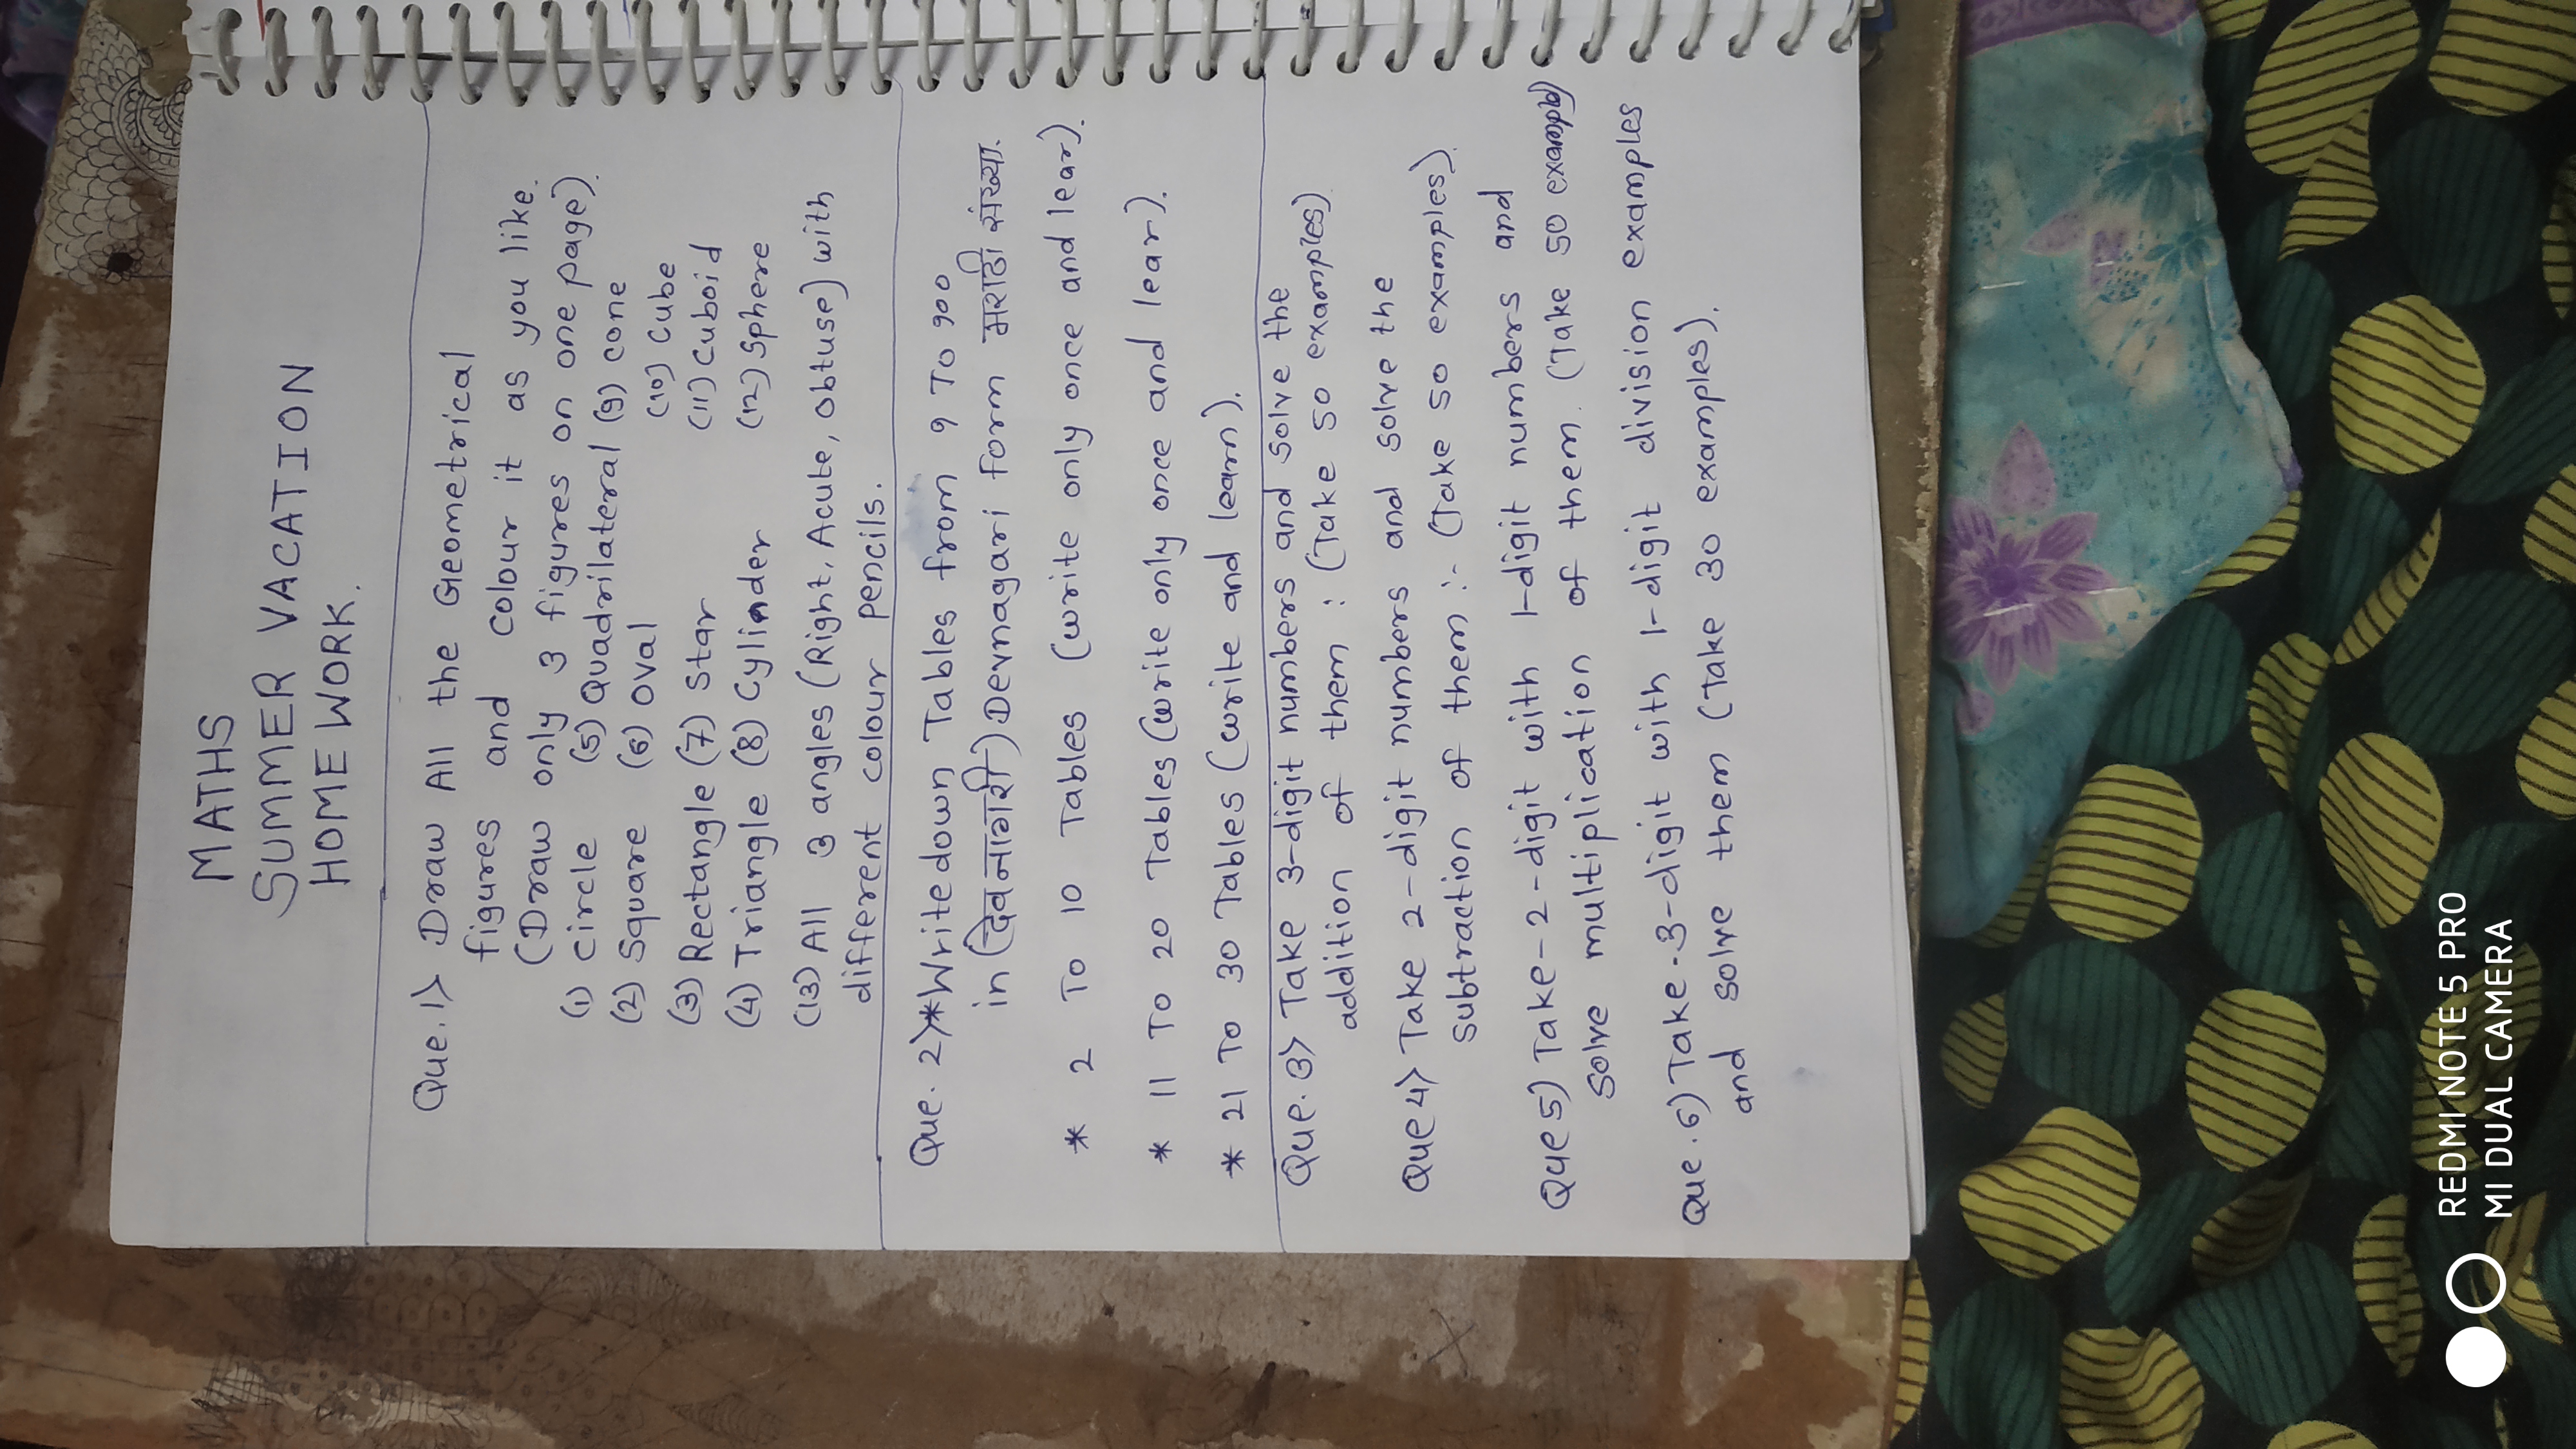 MATHS
SUMMER VACATION
HOME WORK.
Que. 1> Draw All the Geometrical
figures and colour it as you like.
(Draw only 3 figures on one page).
(1) circle (5) Quadrilateral (9) cone
(2) Square (6) Oval (10) Cube
(3) Rectangle (7) Star (11) Cuboid
(4) Triangle (8) Cylinder (12) Sphere
(13) All 3 angles (Right, Acute, Obtuse) with
different colour pencils.
Que. 2>*Write down Tables from १ To १००
in (देवनागरी) Devnagari form मराठी संख्या.
* 2 To 10 Tables (write only once and lear).
* 11 To 20 Tables (write only once and lear).
* 21 To 30 Tables (write and learn).
Que. 3> Take 3-digit numbers and solve the
addition of them : (Take 50 examples)
Que 4> Take 2-digit numbers and solve the
subtraction of them :- (Take 50 examples).
Que 5) Take-2-digit with 1-digit numbers and
solve multiplication of them. (Take 50 example)
Que. 6) Take-3-digit with 1-digit division examples
and solve them (Take 30 examples).
REDMI NOTE 5 PRO
MI DUAL CAMERA